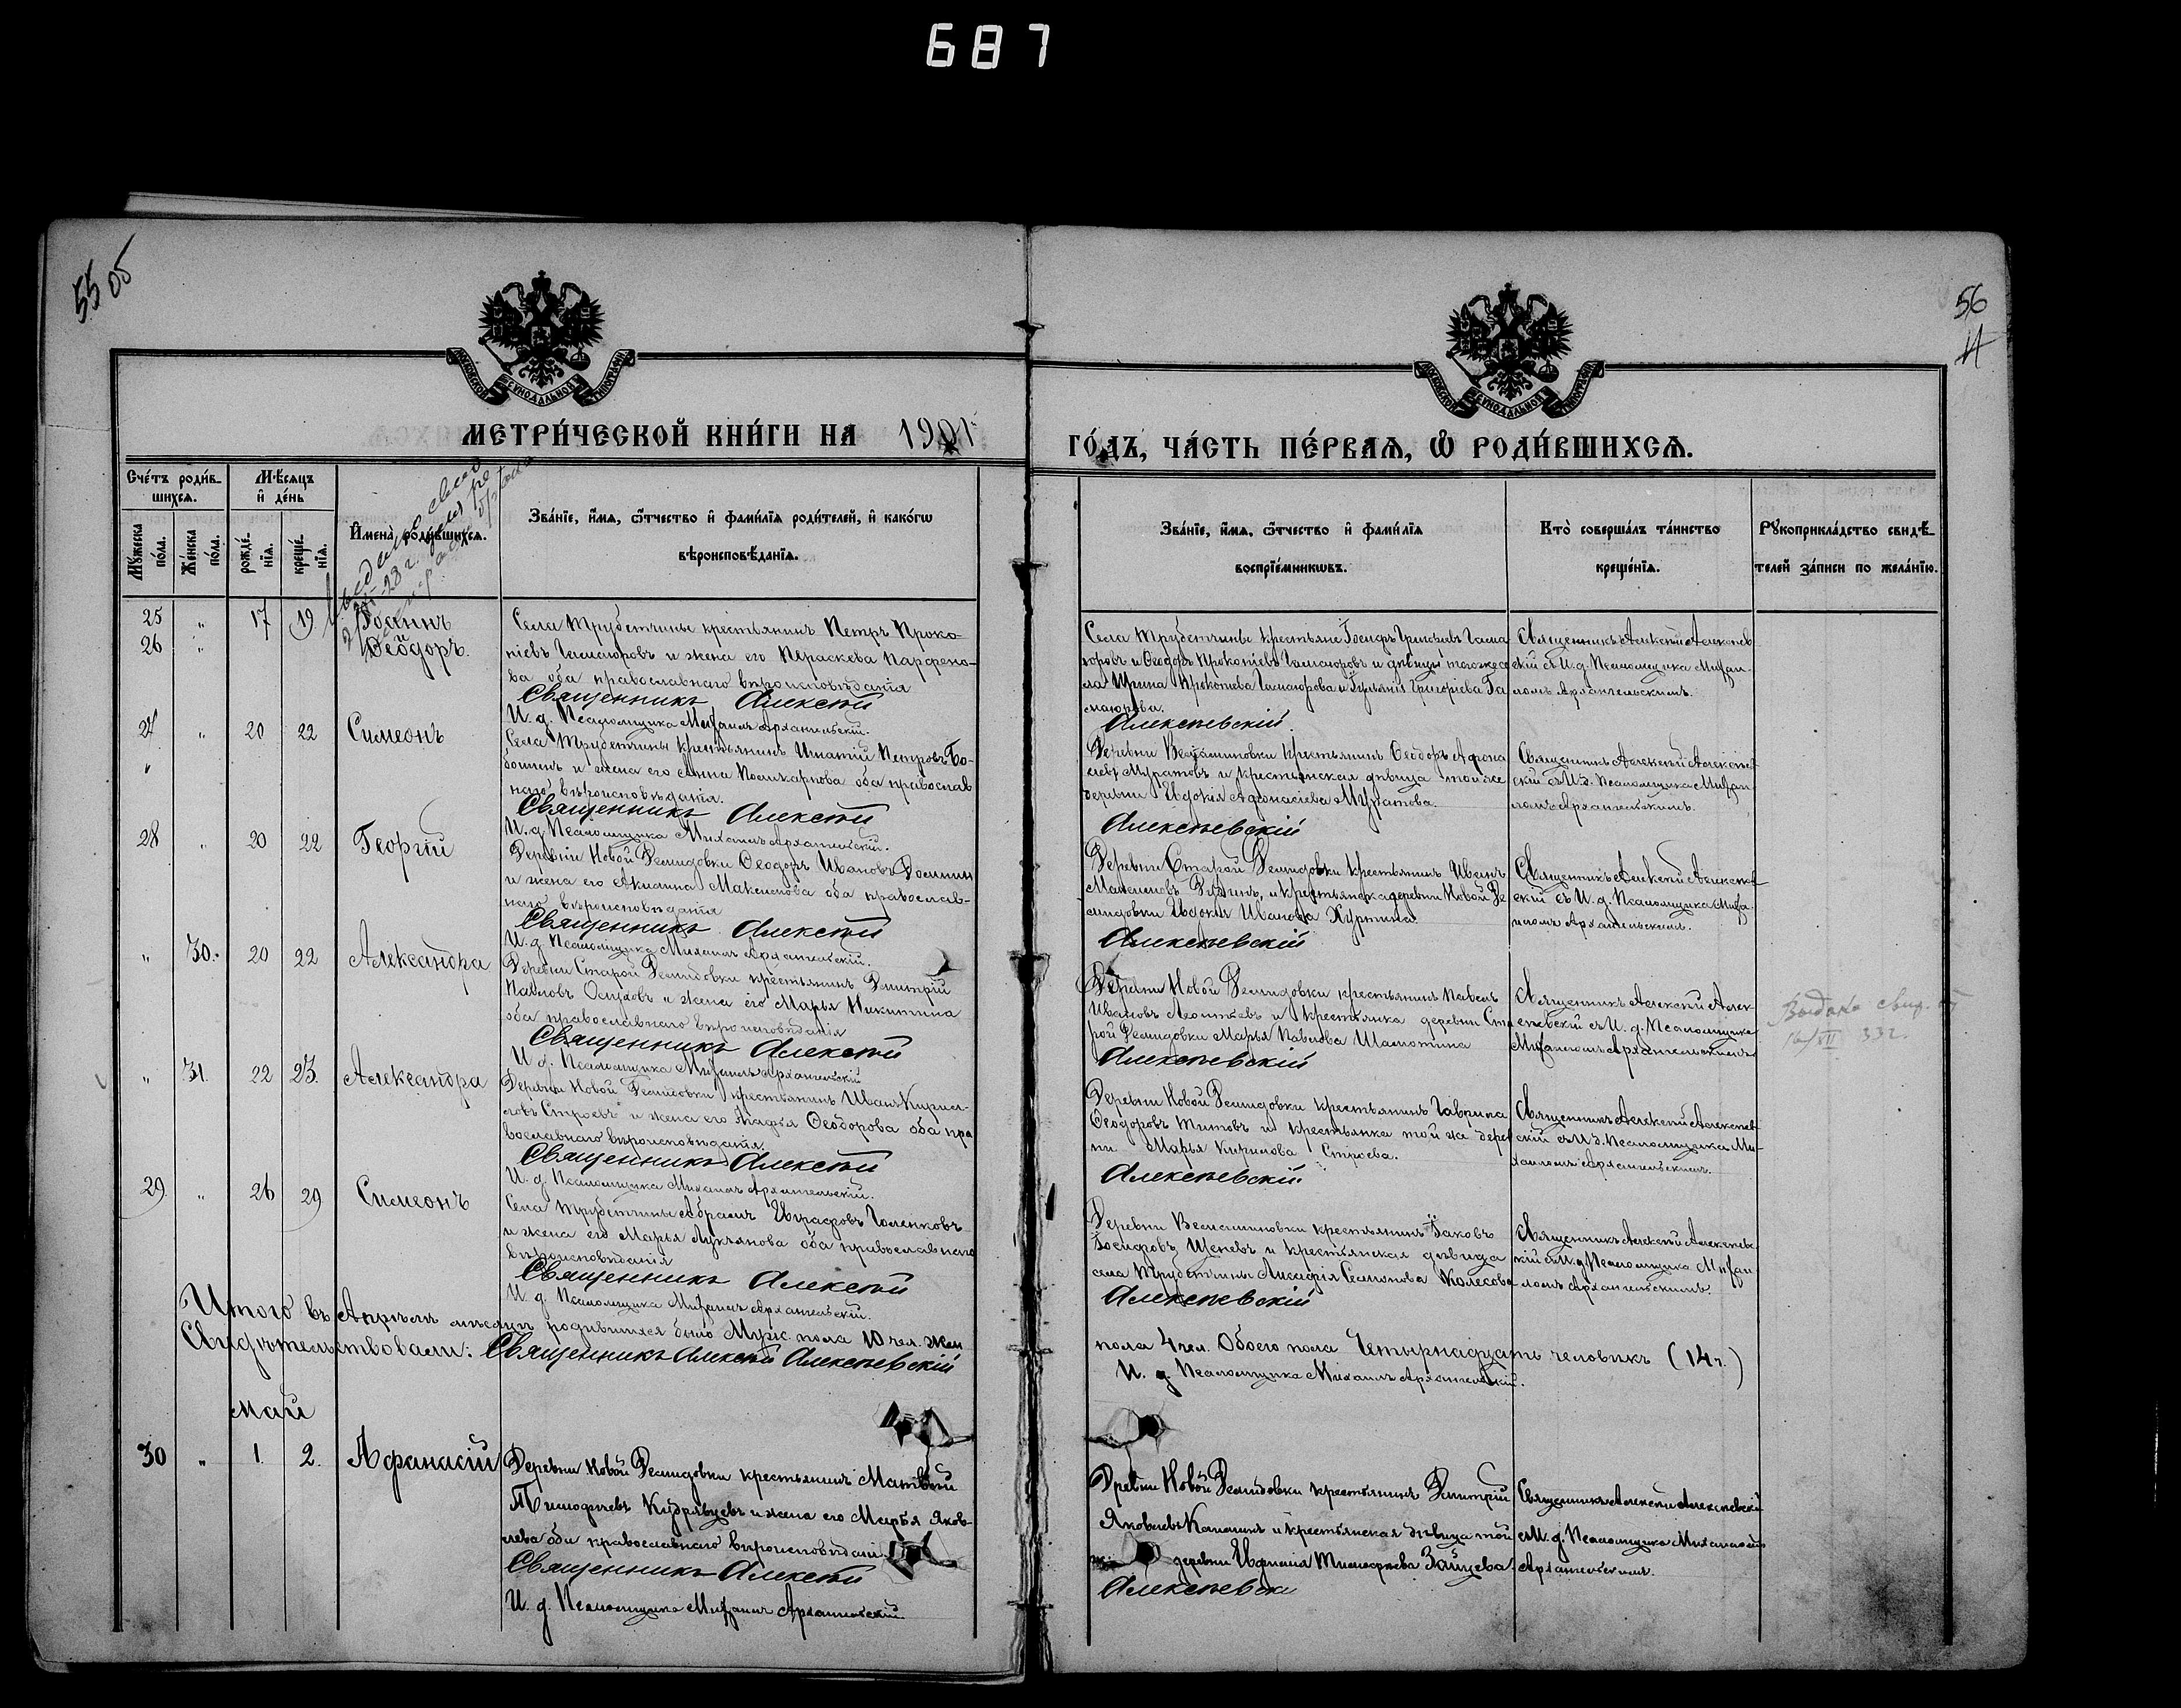 687
55 об
56
МОСКОВСКОЙ СѴНОДАЛЬНОЙ ТИПОГРАФІИ
МОСКОВСКОЙ СѴНОДАЛЬНОЙ ТИПОГРАФІИ
МЕТРИ́ЧЕСКОЙ КНИ́ГИ НА 1901
ГО́ДЪ, ЧА́СТЬ ПЕ́РВАѦ, Ѡ҆ РОДИ́ВШИХСѦ.
Сче́тъ роди́в-
шихсѧ.
Мѣ́сѧцъ
и҆ де́нь
Мꙋ́жеска
по́ла.
Же́нска
по́ла.
рожде́-
нїѧ.
креще́-
нїѧ.
И҆мена̀ роди́вшихсѧ.
Зва́нїе, и҆́мѧ, ѻ҆́тчество и҆ фами́лїѧ роди́телей, и҆ како́гѡ
вѣроисповѣ́данїѧ.
Зва́нїе, и҆́мѧ, ѻ҆́тчество и҆ фами́лїѧ
воспрїе́мникѡвъ.
Кто̀ соверша́лъ та́инство
креще́нїѧ.
Рꙋкоприкла́дство свидѣ́-
телей за́писи по жела́нїю.
25 " 17 19 Іоаннъ
26 " Ѳеодоръ.
Села Трубетчины крестьянинъ Петръ Проко-
піевъ Гамаюровъ и жена его Параскева Парфено-
ва оба православнаго вѣроисповѣданія
Священникъ Алексѣй
И. д. Псаломщика Михаилъ Архангельскій.
Села Трубетчины крестьяне Іосифъ Григорьевъ Гама
юровъ и Ѳеодоръ Прокопіевъ Гамаюровъ и дѣвицы того же се
ла Ирина Прокопіева Гамаюрова и Іуліанія Григоріева Га
маюрова.
Алексѣевскій.
Священникъ Алексѣй Алексѣев
скій съ И. д. Псаломщика Михаи-
ломъ Архангельскимъ.
27 " 20 22 Симеонъ
Села Трубетчины крестьянинъ Игнатій Петровъ Бо-
и жена его Анна Поликарпова оба православ
наго вѣроисповѣданія.
Священникъ Алексѣй
И. д. Псаломщика Михаилъ Архангельскій.
Деревни крестьянинъ Ѳеодоръ Афона
сіевъ Муратовъ и крестьянская дѣвица той же
деревни Евдокія Афонасіева Муратова.
Алексѣевскій
Священникъ Алексѣй Алексѣев
скій съ И. д. Псаломщика Михаи-
ломъ Архангельскимъ.
28 " 20 22 Георгій
Деревни Новой Демидовки Ѳеодоръ Ивановъ
и жена его Акилина Максимова оба православ-
наго вѣроисповѣданія
Священникъ Алексѣй
И. д. Псаломщика Михаилъ Архангельскій.
Деревни Старой Демидовки крестьянинъ Иванъ
Максимовъ и крестьянка деревни Новой Де
мидовки Евдокія Иванова
Алексѣевскій
Священникъ Алексѣй Алексѣев
скій съ И. д. Псаломщика Миха-
иломъ Архангельскимъ.
" 30. 20 22 Александра
Деревни Старой Демидовки крестьянинъ Димитрій
Павловъ Осиповъ и жена его Марья Никитина
оба православнаго вѣроисповѣданія
Священникъ Алексѣй
И. д. Псаломщика Михаилъ Архангельскій
Деревни Новой Демидовки крестьянинъ Павелъ
Ивановъ Леонтьевъ и крестьянка деревни Ста
рой Демидовки Марья Павлова
Алексѣевскій
Священникъ Алексѣй Алек-
сѣевскій съ И. д. Псаломщика
Михаиломъ Архангельскимъ
Выдана свид.
16/XII 33 г.
" 31. 22 23. Александра
Деревни Новой Демидовки крестьянинъ Иванъ Кирил-
ловъ Строевъ и жена его Агафья Ѳеодорова оба пра
вославнаго вѣроисповѣданія.
Священникъ Алексѣй
И. д. Псаломщика Михаилъ Архангельскій.
Деревни Новой Демидовки крестьянинъ Гаврила
Ѳеодоровъ Титовъ и крестьянка той же дерев
ни Марья Кирилова Строева.
Алексѣевскій.
Священникъ Алексѣй Алексѣев-
скій съ И. д. Псаломщика Ми-
хаиломъ Архангельскимъ.
29. " 26 29 Симеонъ
Села Трубетчины Абрамъ Евграфовъ Голенковъ
и жена его Марья Лукьянова оба православнаго
вѣроисповѣданія
Священникъ Алексѣй
И. д. Псаломщика Михаилъ Архангельскій.
Деревни крестьянинъ Іаковъ
Іосифовъ и крестьянская дѣвица
села Трубетчины Симонова Колесова
Алексѣевскій
Священникъ Алексѣй Алексѣевс-
кій съ И. д. Псаломщика Михаи-
ломъ Архангельскимъ.
Итого въ Апрѣлѣ мѣсяцѣ родившихся было Муж. пола 10 чел. Жен
пола 4 чел. Обоего пола Четырнадцать человѣкъ (14 ч.)
Свидѣтельствовали: Священникъ Алексѣй Алексѣевскій
И. д. Псаломщика Михаилъ Архангельскій.
Май
30 " 1 2. Афанасій
Деревни Новой Демидовки крестьянинъ Матвѣй
Тимофеевъ Кудрявцевъ и жена его Марья Яков-
лева оба православнаго вѣроисповѣдані
Священникъ Алексѣй
И. д. Псаломщика Михаилъ Архангельскій
Древни Новой Демидовки крестьянинъ Димитрій
Яковлевъ Калининъ и крестьянская дѣвица той
же деревни Тимофеева Зайцева.
Алексѣевск
Священникъ Алексѣй Алексѣевскій
съ И. д. Псаломщика Михаиломъ
Архангельскимъ.